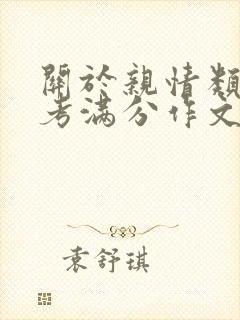 關於親情類
考滿分作文
袁舒琪